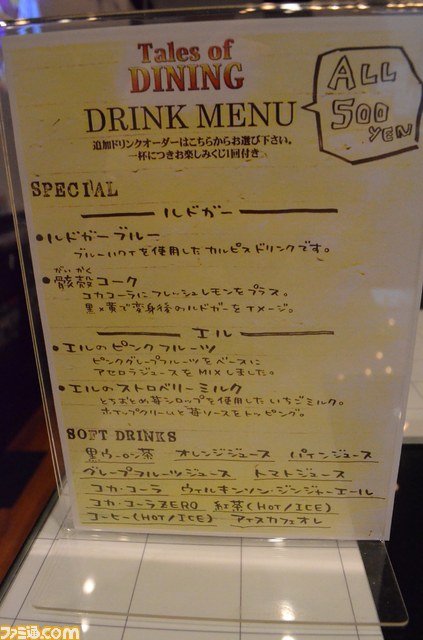 Tales of
DINING
DRINK MENU
追加ドリンクオーダーはこちらからお選び下さい。
一杯につきお楽しみくじ1回付き
ALL
500
YEN
SPECIAL
ルドガー
•ルドガーブルー
ブルーハワイを使用したカルピスドリンクです。
がいかく
•骸殻コーク
コカコーラにフレッシュレモンをプラス。
黒×黄で変身後のルドガーをイメージ。
エル
•エルのピンクフルーツ
ピンクグレープフルーツをベースに
アセロラジュースをMIXしました。
•エルのストロベリーミルク
とちおとめ苺シロップを使用したいちごミルク。
ホイップクリームと苺ソースをトッピング。
SOFT DRINKS
黒ウーロン茶 オレンジジュース パインジュース
グレープフルーツジュース トマトジュース
コカ・コーラ ウィルキンソン・ジンジャーエール
コカ・コーラZERO 紅茶(HOT/ICE)
コーヒー(HOT/ICE) アイスカフェオレ
ファミ通.com